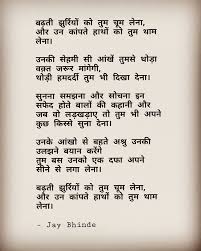 बढ़ती झुर्रियों को तुम चूम लेना,
और उन कांपते हाथों को तुम थाम
लेना।
उनकी सेहमी सी आंखें तुमसे थोड़ा
वक़्त जरूर मांगेगी,
थोड़ी हमदर्दी तुम भी दिखा देना।
सुनना समझना और सोचना इन
सफेद होते बालों की कहानी और
जब वो लड़खड़ाए तो तुम भी अपने
कुछ किस्से सुना देना।
उनके आंखो से बहते अश्रु उनकी
उलझने बयान करेंगे
तुम बस उनको एक दफा अपने
सीने से लगा लेना।
बढ़ती झुर्रियों को तुम चूम लेना,
और उन कांपते हाथों को तुम थाम
लेना।
- Jay Bhinde